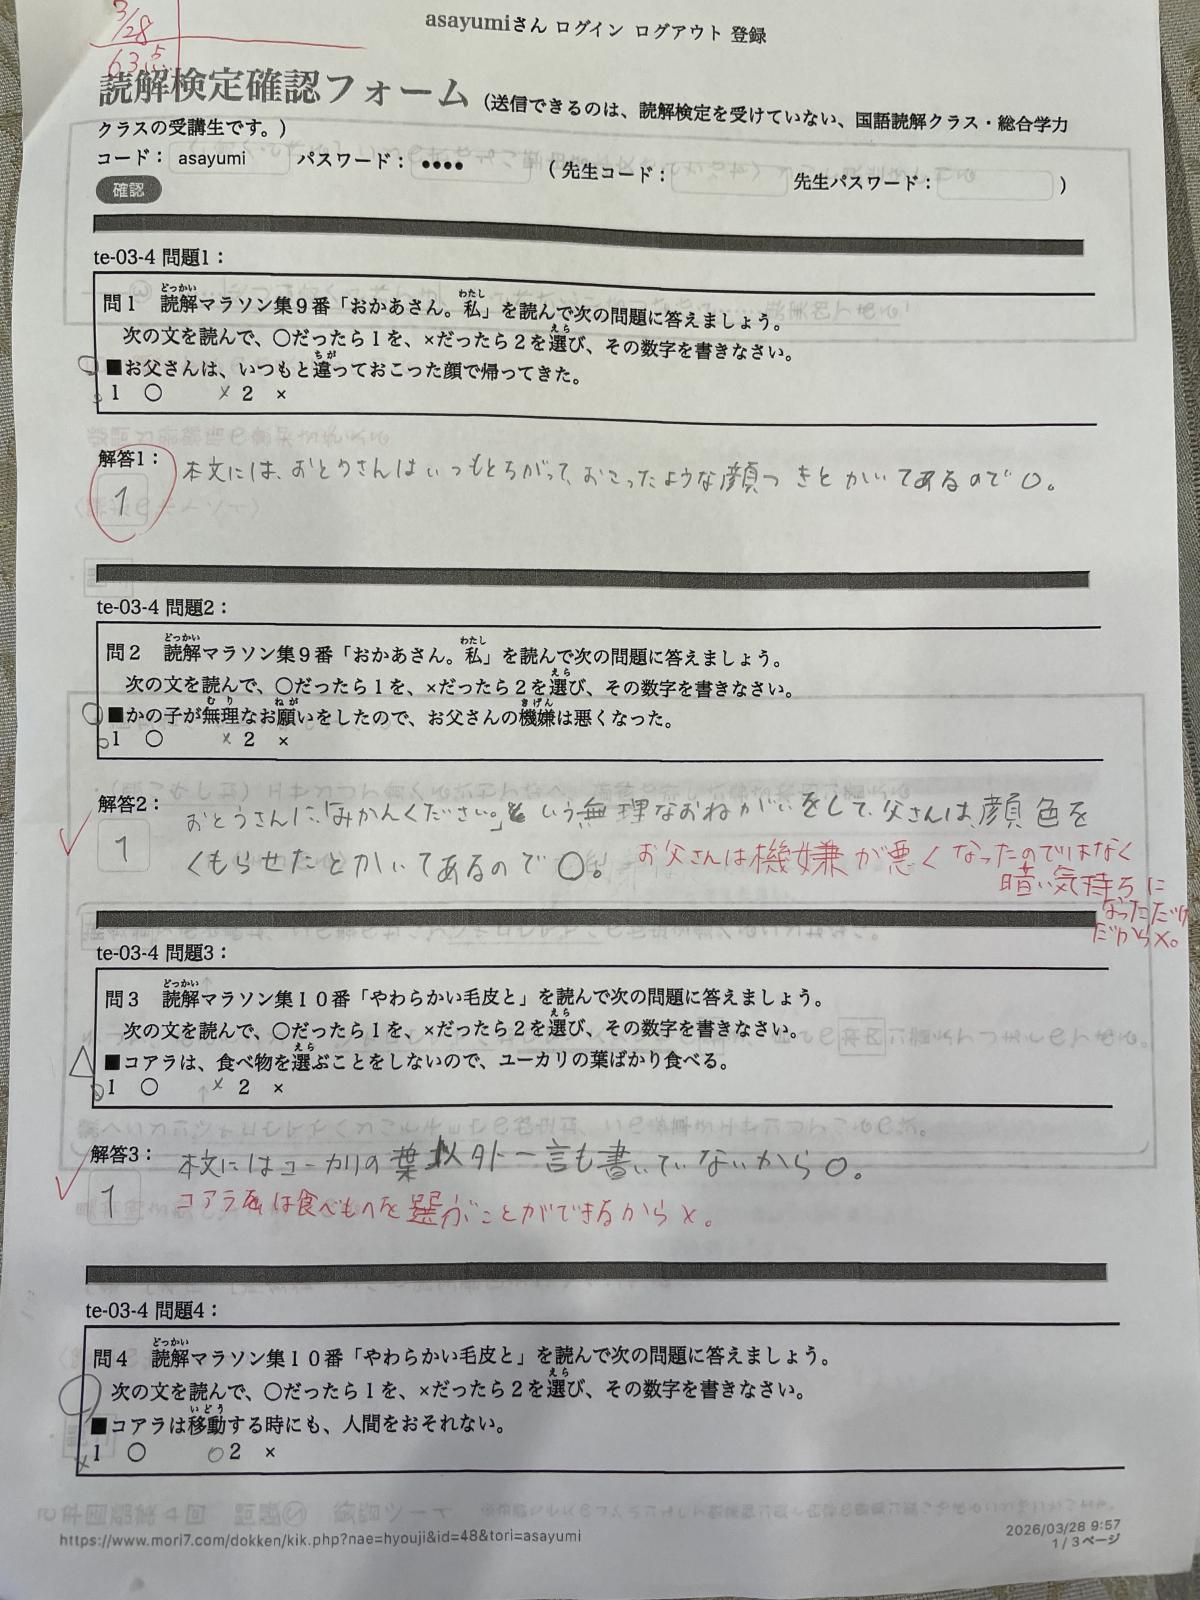 3/28
63点
asayumiさん ログイン ログアウト 登録
読解検定確認フォーム（送信できるのは、読解検定を受けていない、国語読解クラス・総合学力
クラスの受講生です。）
コード： asayumi パスワード： •••• （ 先生コード： 先生パスワード： ）
確認
te-03-4 問題1：
問１ 読解マラソン集９番「おかあさん。私」を読んで次の問題に答えましょう。
次の文を読んで、○だったら１を、×だったら２を選び、その数字を書きなさい。
■お父さんは、いつもと違っておこった顔で帰ってきた。
１ ○ ２ ×
解答1：
1
本文には、おとうさんはいつもとちがって、おこったような顔つきとかいてあるので○。
te-03-4 問題2：
問２ 読解マラソン集９番「おかあさん。私」を読んで次の問題に答えましょう。
次の文を読んで、○だったら１を、×だったら２を選び、その数字を書きなさい。
■かの子が無理なお願いをしたので、お父さんの機嫌は悪くなった。
１ ○ × ２ ×
解答2：
1
おとうさんに、「みかんください。」という無理なおねがいをして、父さんは、顔色を
くもらせたとかいてあるので○。
お父さんは機嫌が悪くなったのではなく
暗い気持ちに
なっただけ
だから×。
te-03-4 問題3：
問３ 読解マラソン集１０番「やわらかい毛皮と」を読んで次の問題に答えましょう。
次の文を読んで、○だったら１を、×だったら２を選び、その数字を書きなさい。
■コアラは、食べ物を選ぶことをしないので、ユーカリの葉ばかり食べる。
１ ○ × ２ ×
解答3：
1
本文にはユーカリの葉以外一言も書いていないから○。
コアラは食べものを選ぶことができるから×。
te-03-4 問題4：
問４ 読解マラソン集１０番「やわらかい毛皮と」を読んで次の問題に答えましょう。
次の文を読んで、○だったら１を、×だったら２を選び、その数字を書きなさい。
■コアラは移動する時にも、人間をおそれない。
１ ○ ○ ２ ×
https://www.mori7.com/dokken/kik.php?nae=hyouji&id=48&tori=asayumi
2026/03/28 9:57
1 / 3ページ